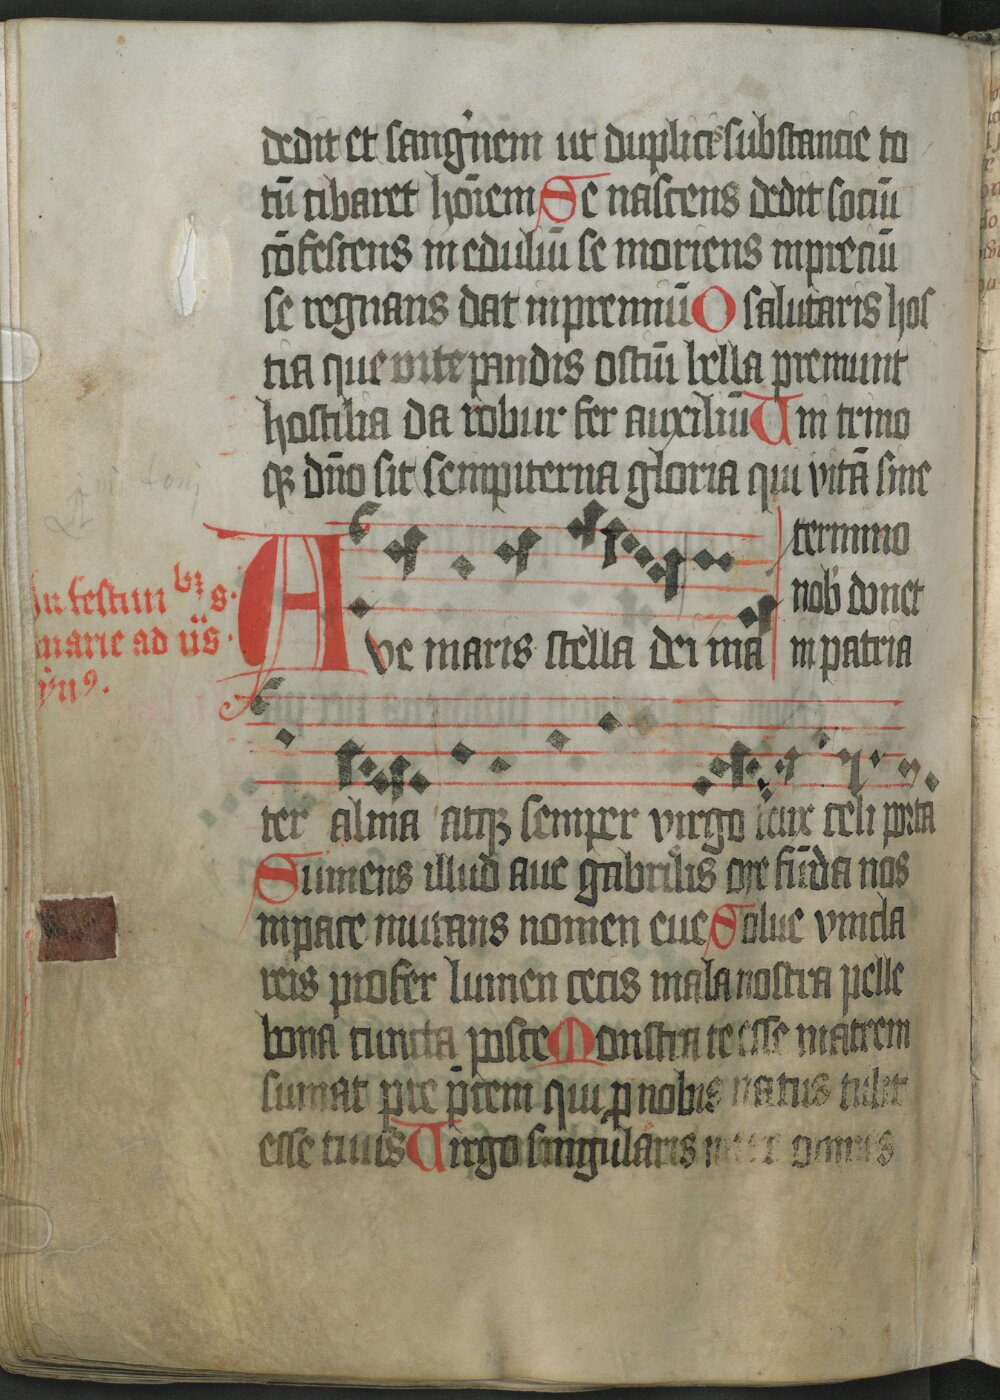 dedit et sangͥnem ut duplicis substancie to
tū cibaret hoīem Se nascens dedit sociū
cōfescens in eduliū se moriens in preciū
se regnans dat in premiū O salutaris hos
tia que vite pandis ostiū bella premunt
hostilia da robur fer auxiliū Un trino
qꝫ dn̄o sit sempiterna gloria qui vitā sine
termino
nob donet
in patria
In festiuitatibꝫ s.
marie ad ii s.
Ave maris stella dei ma
ter alma atqꝫ semper virgo felix celi porta
Sumens illud aue gabrielis ore fūda nos
in pace mutans nomen eue Solue vincla
reis profer lumen cecis mala nostra pelle
bona cuncta posce Monstra te esse matrem
sumat per te p̄cem qui ꝓ nobis natus tulit
esse tuus Uirgo singularis inter omnis